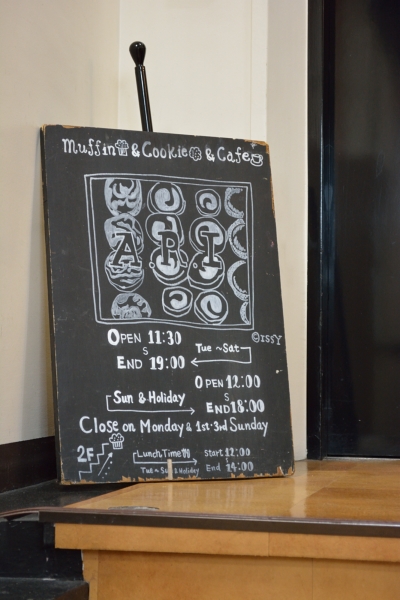 Muffin & Cookie & Cafe
A.R.I
OPEN 11:30
S
END 19:00
Tue ~ Sat
©ISSY
Sun & Holiday
OPEN 12:00
S
END 18:00
Close on Monday & 1st・3rd Sunday
2F
Lunch Time
Start 12:00
Tue ~ Sun & Holiday
End 14:00